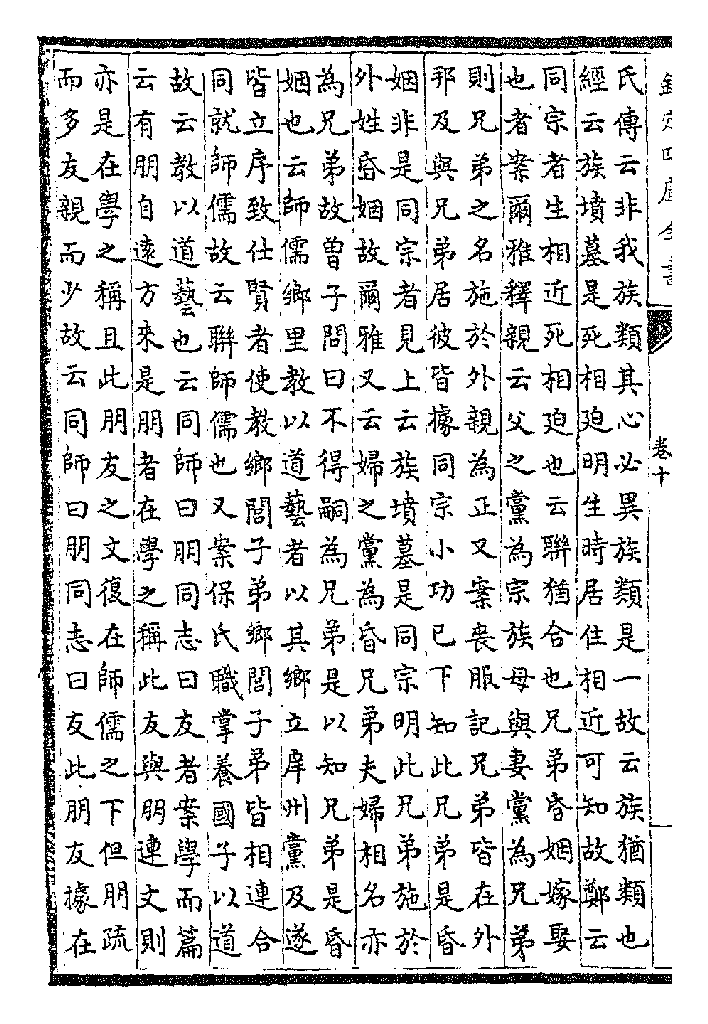 欽定四庫全書
卷十
氏傳云非我族類其心必異族類是一故云族猶類也
經云族墳墓是死相廹明生時居住相近可知故鄭云
同宗者生相近死相廹也云聯猶合也兄弟昏姻嫁娶
也者案爾雅釋親云父之黨為宗族母與妻黨為兄弟
則兄弟之名施於外親為正又案喪服記兄弟皆在外
邦及與兄弟居彼皆據同宗小功已下知此兄弟是昏
姻非是同宗者見上云族墳墓是同宗明此兄弟施於
外姓昏姻故爾雅又云婦之黨為昏兄弟夫婦相名亦
為兄弟故曽子問曰不得嗣為兄弟是以知兄弟是昏
姻也云師儒鄉里教以道藝者以其鄉立庠州黨及遂
皆立序致仕賢者使教鄉閭子弟鄉閭子弟皆相連合
同就師儒故云聯師儒也又案保氏職掌養國子以道
故云教以道藝也云同師曰朋同志曰友者案學而篇
云有朋自逺方來是朋者在學之稱此友與朋連文則
亦是在學之稱且此朋友之文復在師儒之下但朋疏
而多友親而少故云同師曰朋同志曰友此朋友據在